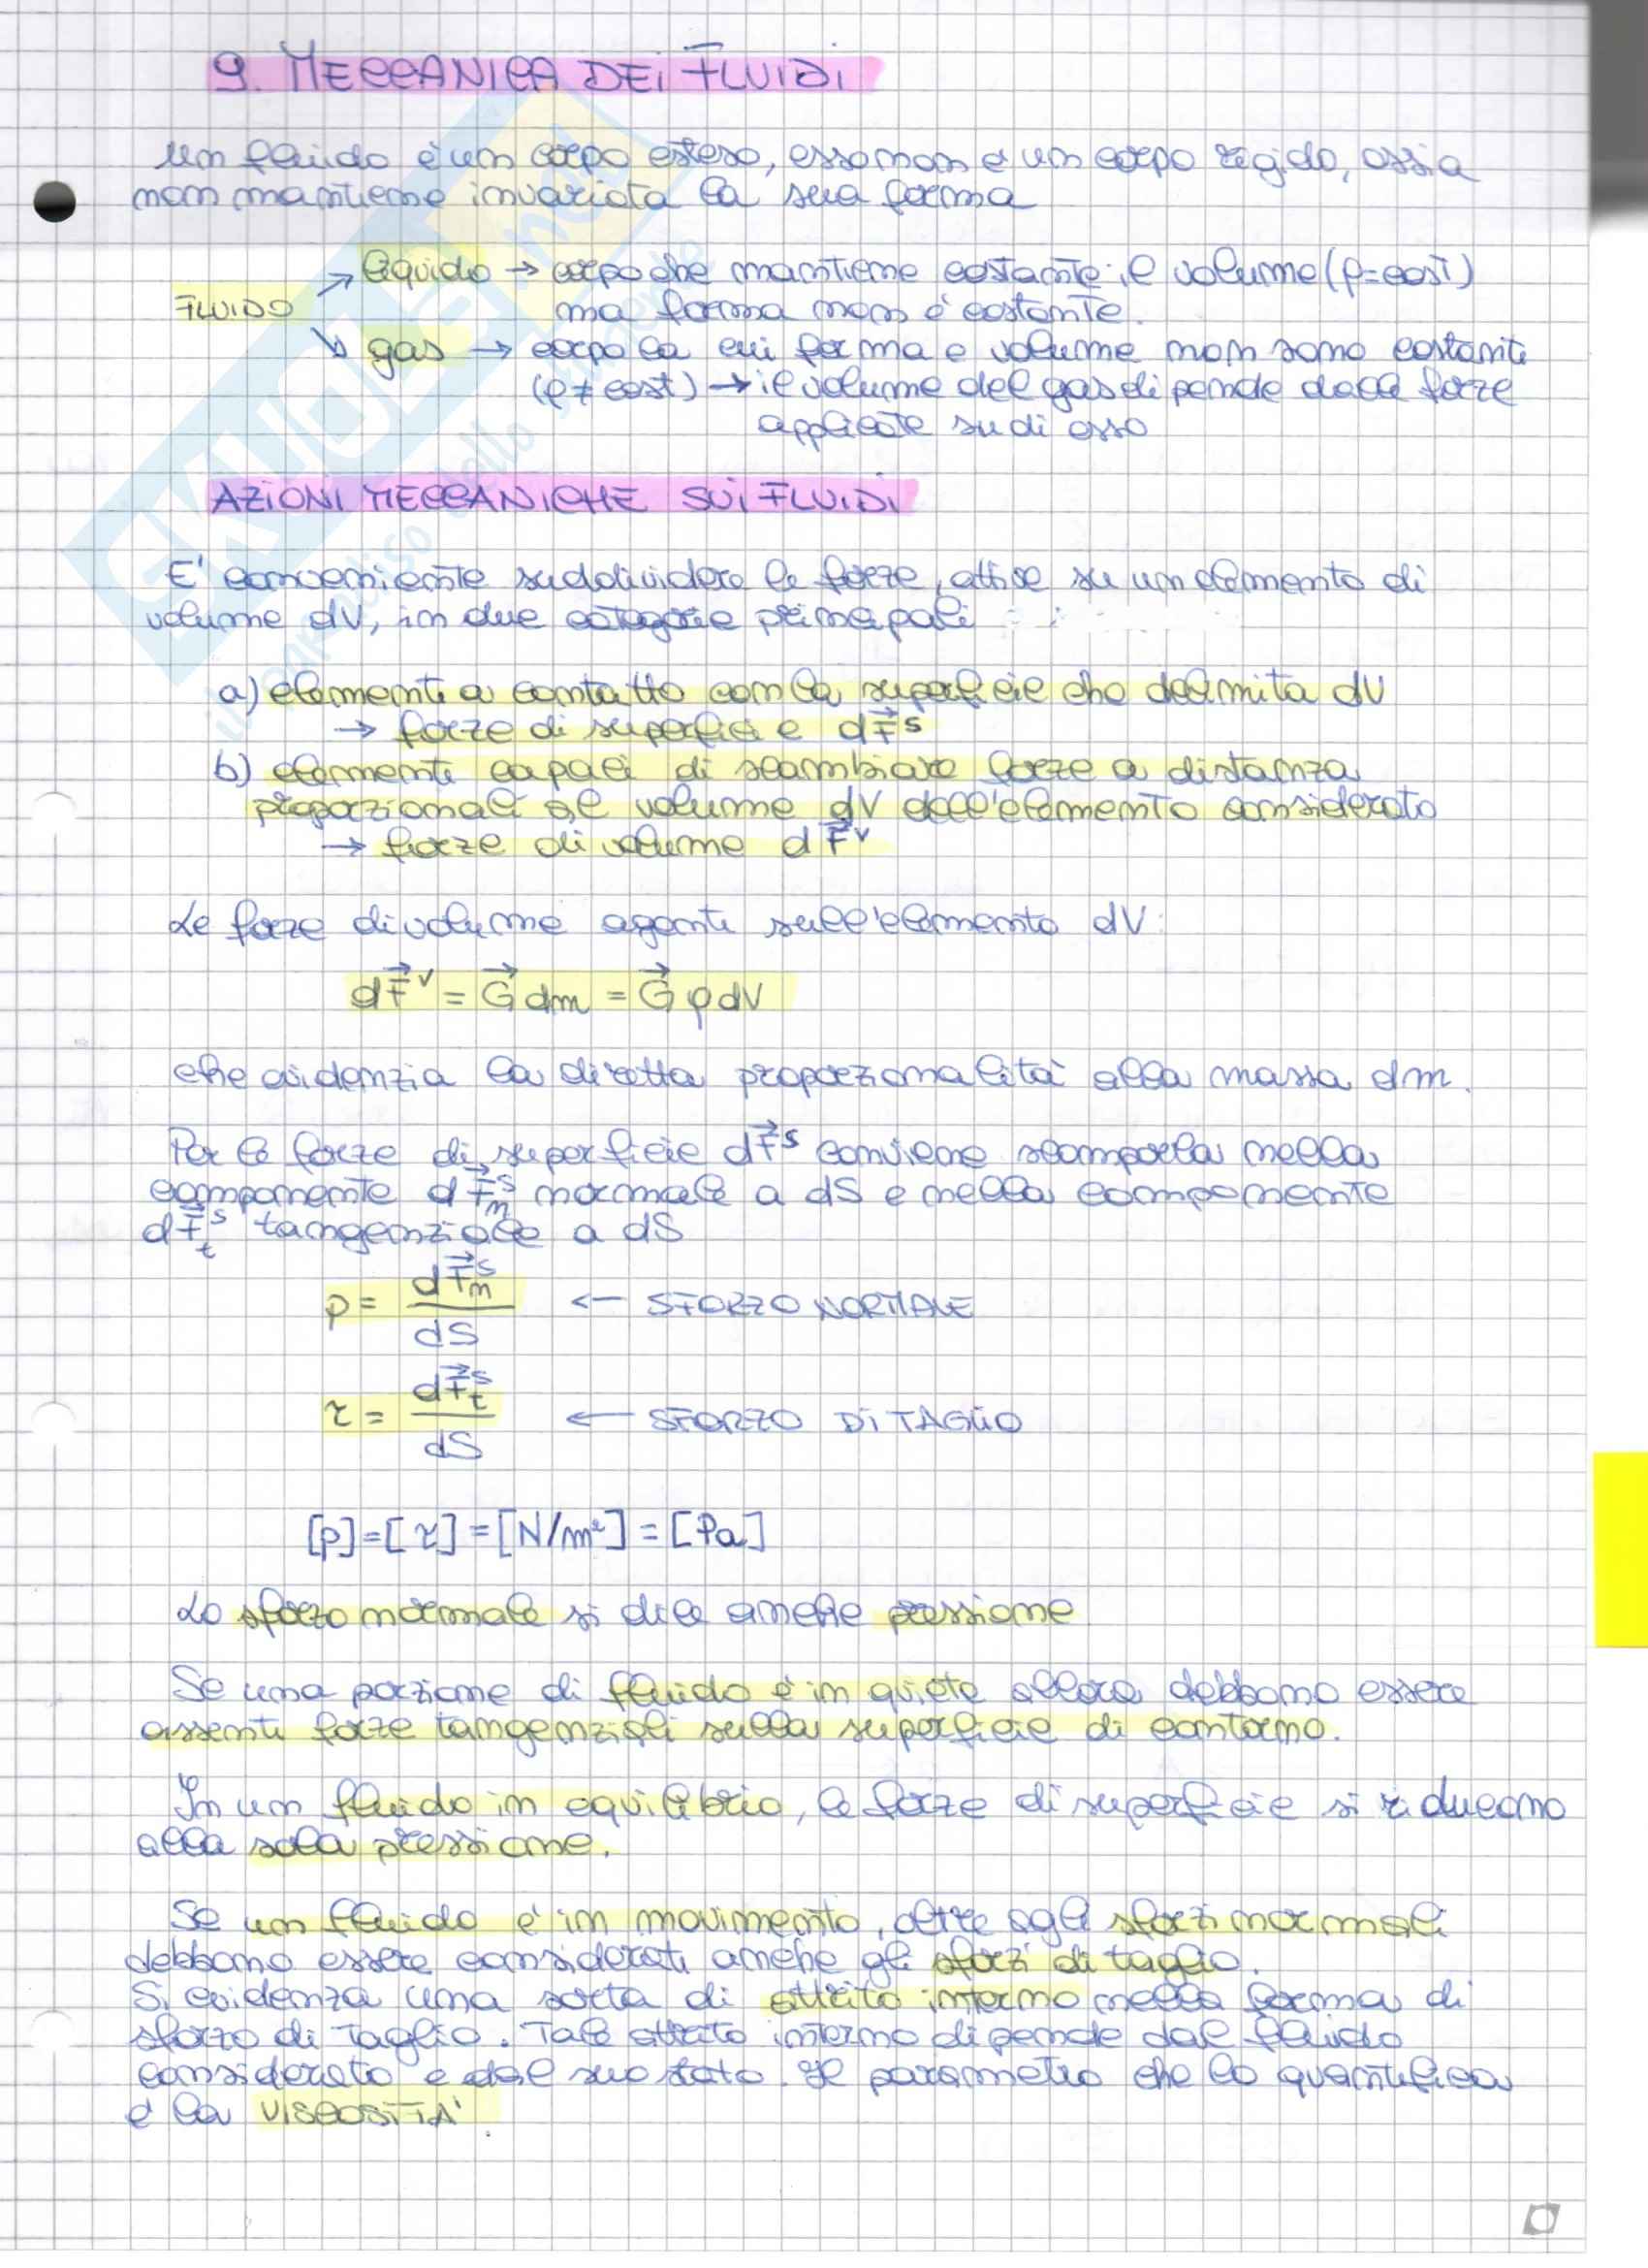 9. MECCANICA DEI FLUIDI
Un fluido è un corpo esteso, esso non è un corpo rigido, ossia
non mantiene invariata la sua forma
liquido → corpo che mantiene costante il volume (ρ=cost)
FLUIDO
ma forma non è costante.
gas → corpo la cui forma e volume non sono costanti
(ρ≠cost) → il volume del gas dipende dalle forze
applicate su di esso
AZIONI MECCANICHE SUI FLUIDI
E' conveniente suddividere le forze, attive su un elemento di
volume dV, in due categorie principali
a) elementi a contatto con la superficie che delimita dV
→ forze di superficie dF⃗ˢ
b) elementi capaci di scambiare forze a distanza
proporzionali al volume dV dell'elemento considerato
→ forze di volume dF⃗ᵛ
Le forze di volume agenti sull'elemento dV:
dF⃗ᵛ = G⃗ dm = G⃗ ρ dV
che evidenzia la diretta proporzionalità alla massa dm.
Per le forze di superficie dF⃗ˢ conviene scomporla nella
componente dF⃗ₙˢ normale a dS e nella componente
dF⃗ₜˢ tangenziale a dS
p = dF⃗ₙˢ / dS ← SFORZO NORMALE
τ = dF⃗ₜˢ / dS ← SFORZO DI TAGLIO
[p]=[τ]=[N/m²]=[Pa]
Lo sforzo normale si dice anche pressione
Se una porzione di fluido è in quiete allora debbono essere
assenti forze tangenziali sulla superficie di contorno.
In un fluido in equilibrio, le forze di superficie si riducono
alla sola pressione.
Se un fluido è in movimento, oltre agli sforzi normali
debbono essere considerati anche gli sforzi di taglio.
Si evidenza una sorta di attrito interno nella forma di
sforzo di taglio. Tale attrito interno dipende dal fluido
considerato e dal suo stato. Il parametro che lo quantifica
è la VISCOSITA'.